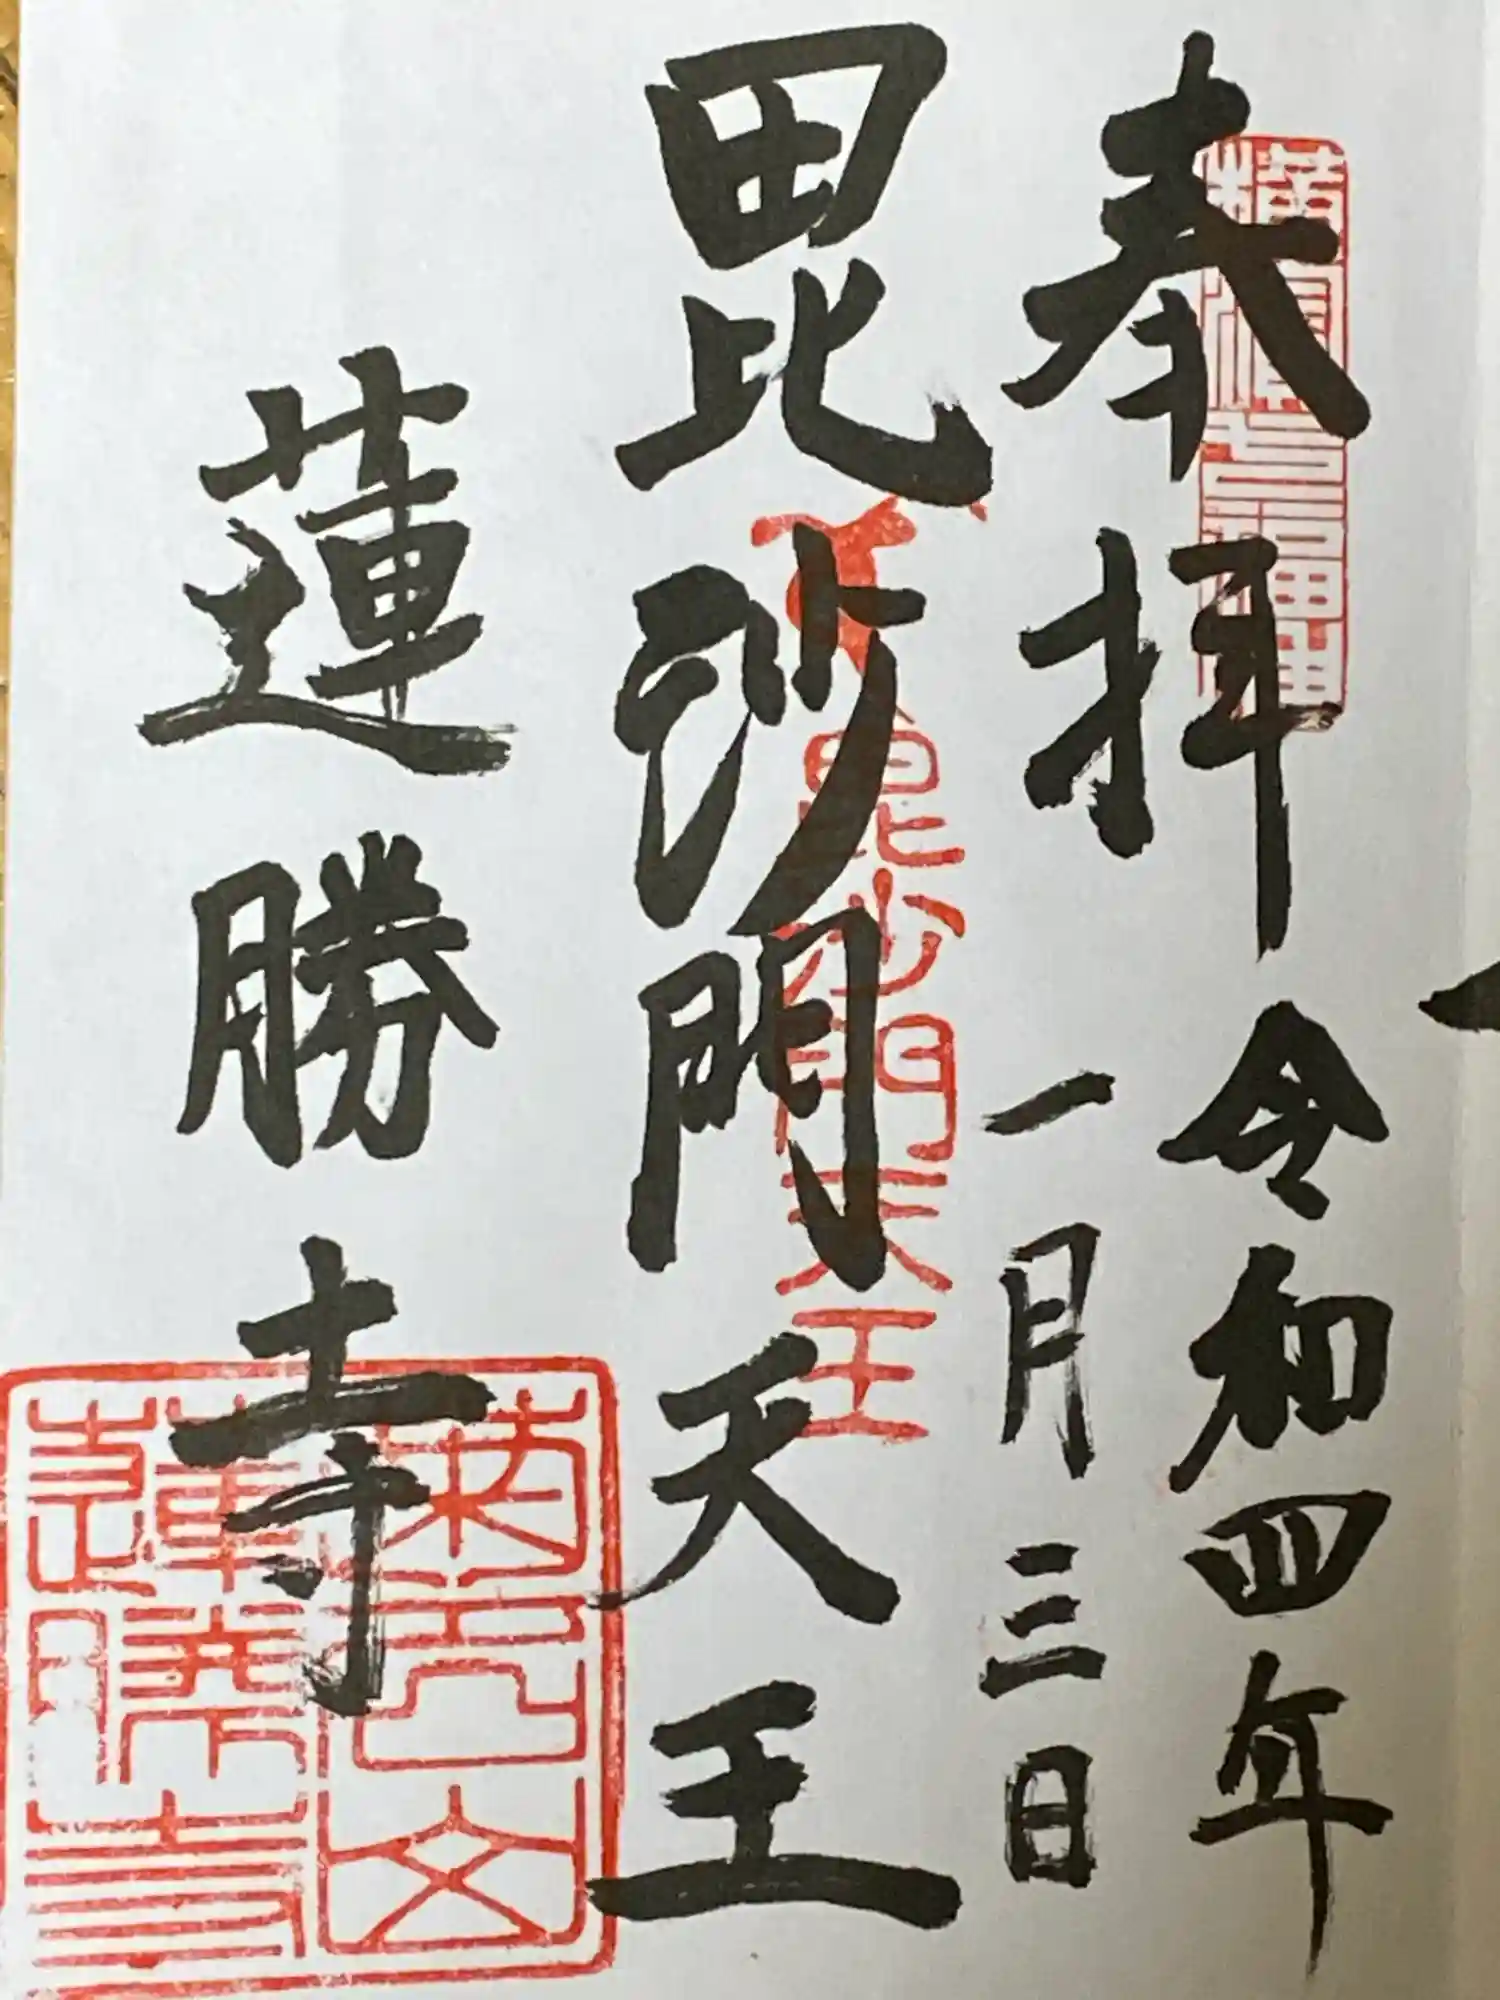 奉拝
令和四年
一月三日
毘沙門天王
蓮勝寺
毘沙門天王
蓮勝寺